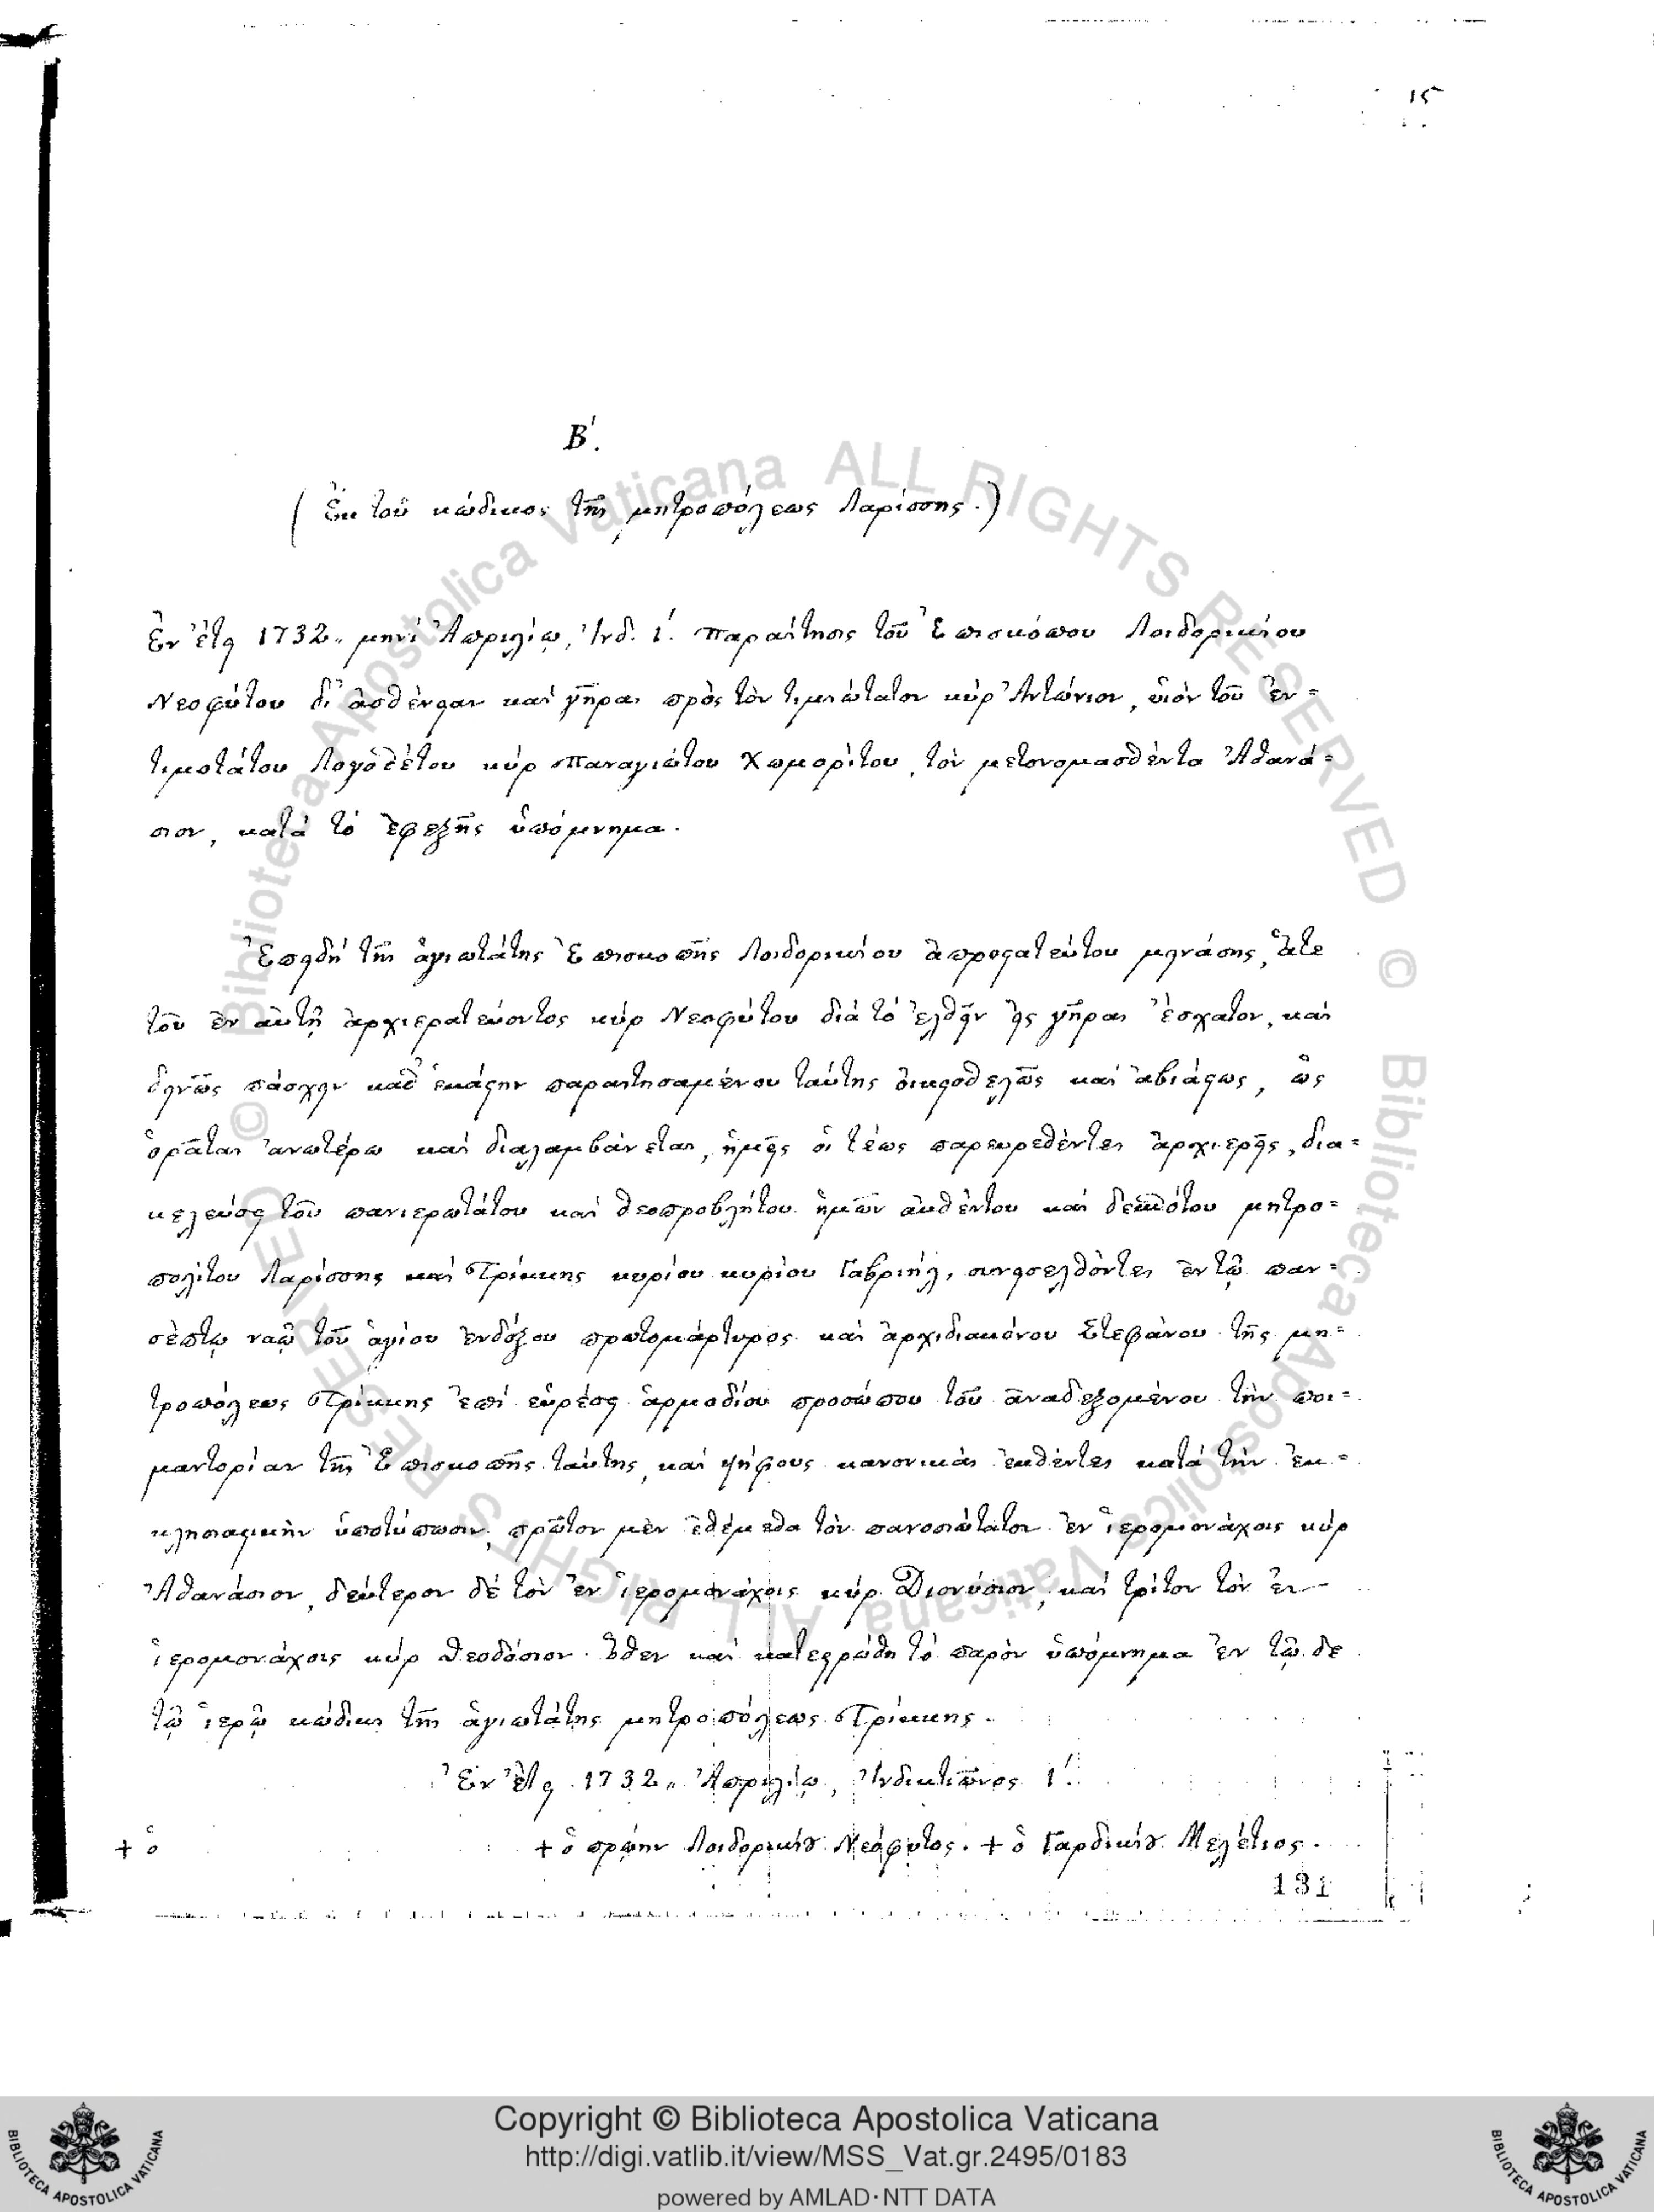 15
Β΄.
(Ἐκ τοῦ κώδικος τῆς μητροπόλεως Λαρίσσης.)
Ἐν ἔτει 1732. μηνὶ Ἀπριλίῳ, Ἰνδ. ί. παραίτησις τοῦ Ἐπισκόπου Λοιδορικίου
Νεοφύτου δι' ἀσθένειαν καὶ γῆρας πρὸς τὸν τιμιώτατον κὺρ Ἀντώνιον, υἱὸν τοῦ ἐν=
τιμοτάτου Λογοθέτου κὺρ Παναγιώτου Χωμορίτου, τὸν μετονομασθέντα Ἀθανά=
σιον, κατὰ τὸ ἐφεξῆς ὑπόμνημα.
Ἐπειδὴ τῆς ἁγιωτάτης Ἐπισκοπῆς Λοιδορικίου ἀπροστατεύτου μεινάσης, ἅτε
τοῦ ἐν αὐτῇ ἀρχιερατεύοντος κὺρ Νεοφύτου διὰ τὸ ἐλθεῖν εἰς γῆρας ἔσχατον, καὶ
δεινῶς πάσχειν καθ' ἑκάστην παραιτησαμένου ταύτης οἰκειοθελῶς καὶ ἀβιάστως, ὡς
ὁρᾶται ἀνωτέρω καὶ διαλαμβάνεται, ἡμεῖς οἱ τέως παρευρεθέντες ἀρχιερεῖς, δια=
κελεύσει τοῦ πανιερωτάτου καὶ θεοπροβλήτου ἡμῶν αὐθέντου καὶ δεσπότου μητρο=
πολίτου Λαρίσσης καὶ Τρίκκης κυρίου κυρίου Γαβριήλ, συνεισελθόντες ἐν τῷ παν=
σέπτῳ ναῷ τοῦ ἁγίου ἐνδόξου πρωτομάρτυρος καὶ ἀρχιδιακόνου Στεφάνου τῆς μη=
τροπόλεως Τρίκκης ἐπὶ εὑρέσει ἁρμοδίου προσώπου τοῦ ἀναδεξομένου τὴν ποι=
μαντορίαν τῆς Ἐπισκοπῆς ταύτης, καὶ ψήφους κανονικὰς ἐκθέντες κατὰ τὴν ἐκ=
κλησιαστικὴν ὑποτύπωσιν, πρῶτον μὲν ἐθέμεθα τὸν πανοσιώτατον ἐν ἱερομονάχοις κὺρ
Ἀθανάσιον, δεύτερον δὲ τὸν ἐν ἱερομονάχοις κὺρ Διονύσιον, καὶ τρίτον τὸν ἐν
ἱερομονάχοις κὺρ Θεοδόσιον. Ὅθεν καὶ κατεστρώθη τὸ παρὸν ὑπόμνημα ἐν τῷδε
τῷ ἱερῷ κώδικι τῆς ἁγιωτάτης μητροπόλεως Τρίκκης.
Ἐν ἔτει 1732. Ἀπριλίῳ, Ἰνδικτιῶνος ί.
+ ὁ + ὁ πρῴην Λοιδορικίου Νεόφυτος. + ὁ Γαρδικίου Μελέτιος.
131
Copyright © Biblioteca Apostolica Vaticana
http://digi.vatlib.it/view/MSS_Vat.gr.2495/0183
powered by AMLAD·NTT DATA